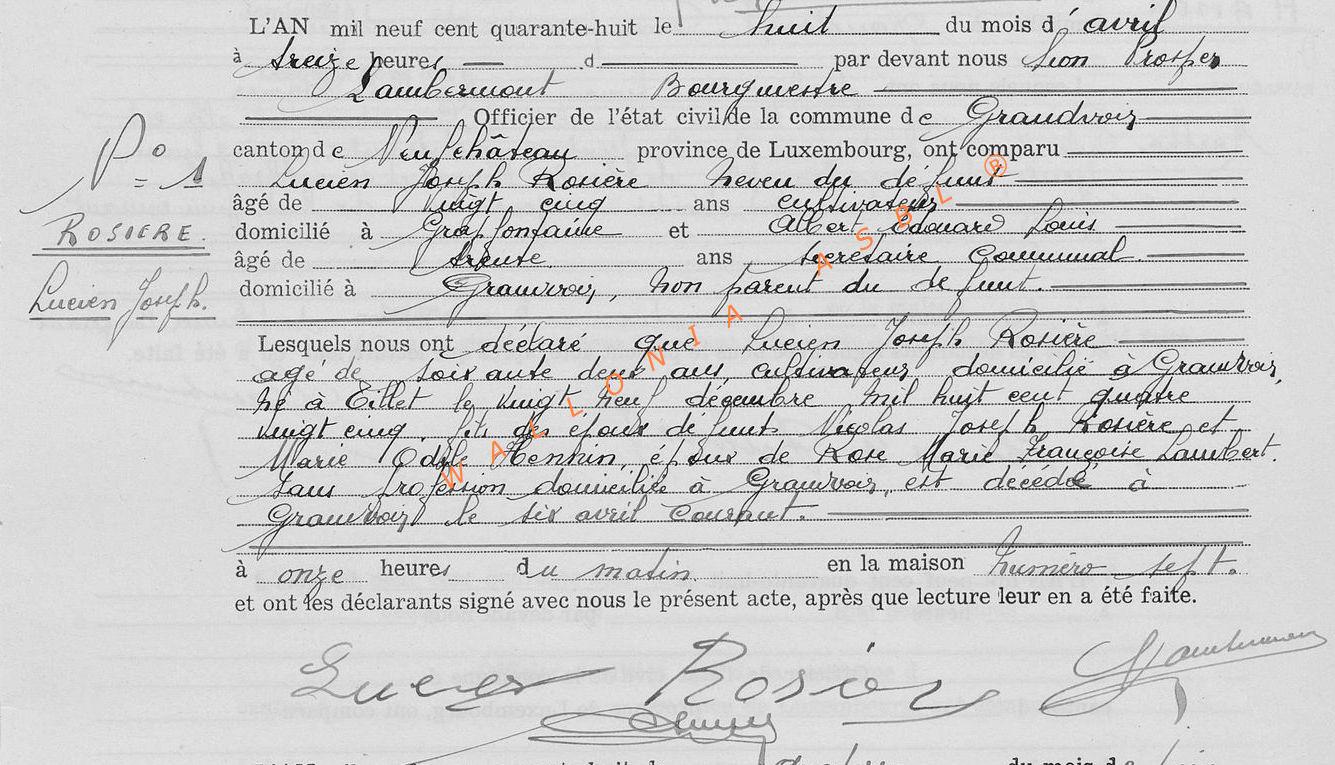 L'AN mil neuf cent quarante-huit le huit du mois d'avril
à treize heures d par devant nous Léon Prosper
Lambermont Bourgmestre
Officier de l'état civil de la commune de Grandvoir
canton de Neufchâteau province de Luxembourg, ont comparu
N° 1
Lucien Joseph Rosière neveu du défunt
âgé de vingt cinq ans cultivateur
ROSIERE.
domicilié à Grapfontaine et Albert Edouard Louis
âgé de trente ans secrétaire communal
Lucien Joseph.
domicilié à Grandvoir, non parent du défunt.
Lesquels nous ont déclaré que Lucien Joseph Rosière
agé de soixante deux ans, cultivateur domicilié à Grandvoir,
né à Eillet le vingt neuf décembre mil huit cent quatre
vingt cinq, fils des époux défunts Nicolas Joseph Rosière et
Marie Odyle Hennin, époux de Rose Marie Françoise Lambert.
sans profession domiciliée à Grandvoir, est décédé à
Grandvoir le six avril courant.
à onze heures du matin en la maison numéro sept.
et ont les déclarants signé avec nous le présent acte, après que lecture leur en a été faite.
Lucien Rosière
WALLONIA ASBL ®